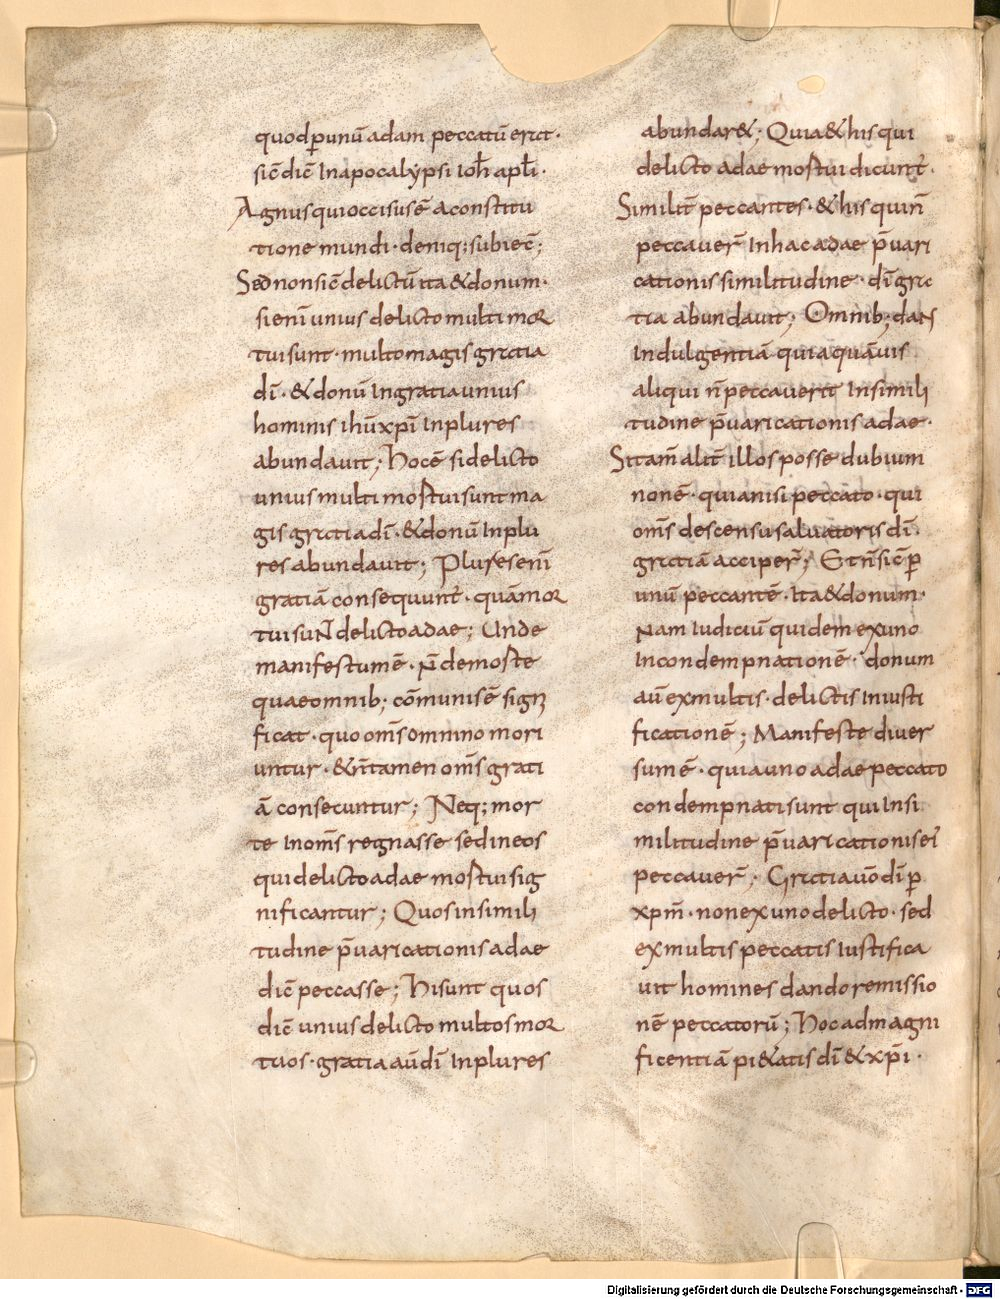 quod p̱ unū adam peccatū erat.
sic̄ dic̄ Inapocalypsi Ioh̄ apl̄i.
Agnus qui occisus ē aconstitu
tione mundi. deniq; subiec̄;
Sed non sic̄ delictū ita & donum.
si eni̅ unius delicto multi mor
tui sunt. multo magis gratia
dī. & donū In gratia unius
hominis ihū xpī In plures
abundauit; Hoc ē si delicto
unius multi mortui sunt ma
gis gratia dī. & donū In plu
res abundauit; Plures enī
gratiā consequunt̄. quā mor
tui suNt delicto adae; Unde
manifestum ē. n̄ de morte
quae omnib; cōmunis ē signi
ficat. quo om̄s omnino mori
untur. & n̄ tamen om̄s grati
ā consecuntur; Neq; mor
te In om̄s regnasse sed in eos
qui delicto adae mortui sig
nificantur; Quos in simili
tudine p̄uaricationis adae
dic̄ peccasse; Hi sunt quos
dic̄ unius delicto multos mor
tuos. gratia aū dī In plures
abundar&; Quia & his qui
delicto adae mortui dicunt̄.
Similit̄ peccantes. & his qui n̄
peccauer̄ In hac adae p̄uari
cationis similitudine. dī gra
tia abundauit; Omnib; daNs
Indulgentiā quia quāuis
aliqui n̄ peccauerit In simili
tudine p̄uaricationis adae.
Si tam̄ alit̄ illos posse dubium
non ē. quia nisi peccato. qui
om̄s descensu saluatoris dī.
gratiā acciper̄; Et n̄ sic̄ p̱
unū peccantē. Ita & donum.
Nam Iudiciū quidem ex uno
In condempnationē. donum
aū ex multis. delictis In iusti
ficationē; Manifeste diuer
sum ē. quia uno adae peccato
condempnati sunt qui In si
militudine p̄uaricationis ei'
peccauer̄; Gratia uō dī p̱
xpm̄. non ex uno delicto. sed
ex multis peccatis Iustifica
uit homines dando remissio
nē peccatorū; Hoc ad magni
ficentiā pi&atis dī & xpī.
Digitalisierung gefördert durch die Deutsche Forschungsgemeinschaft - DFG